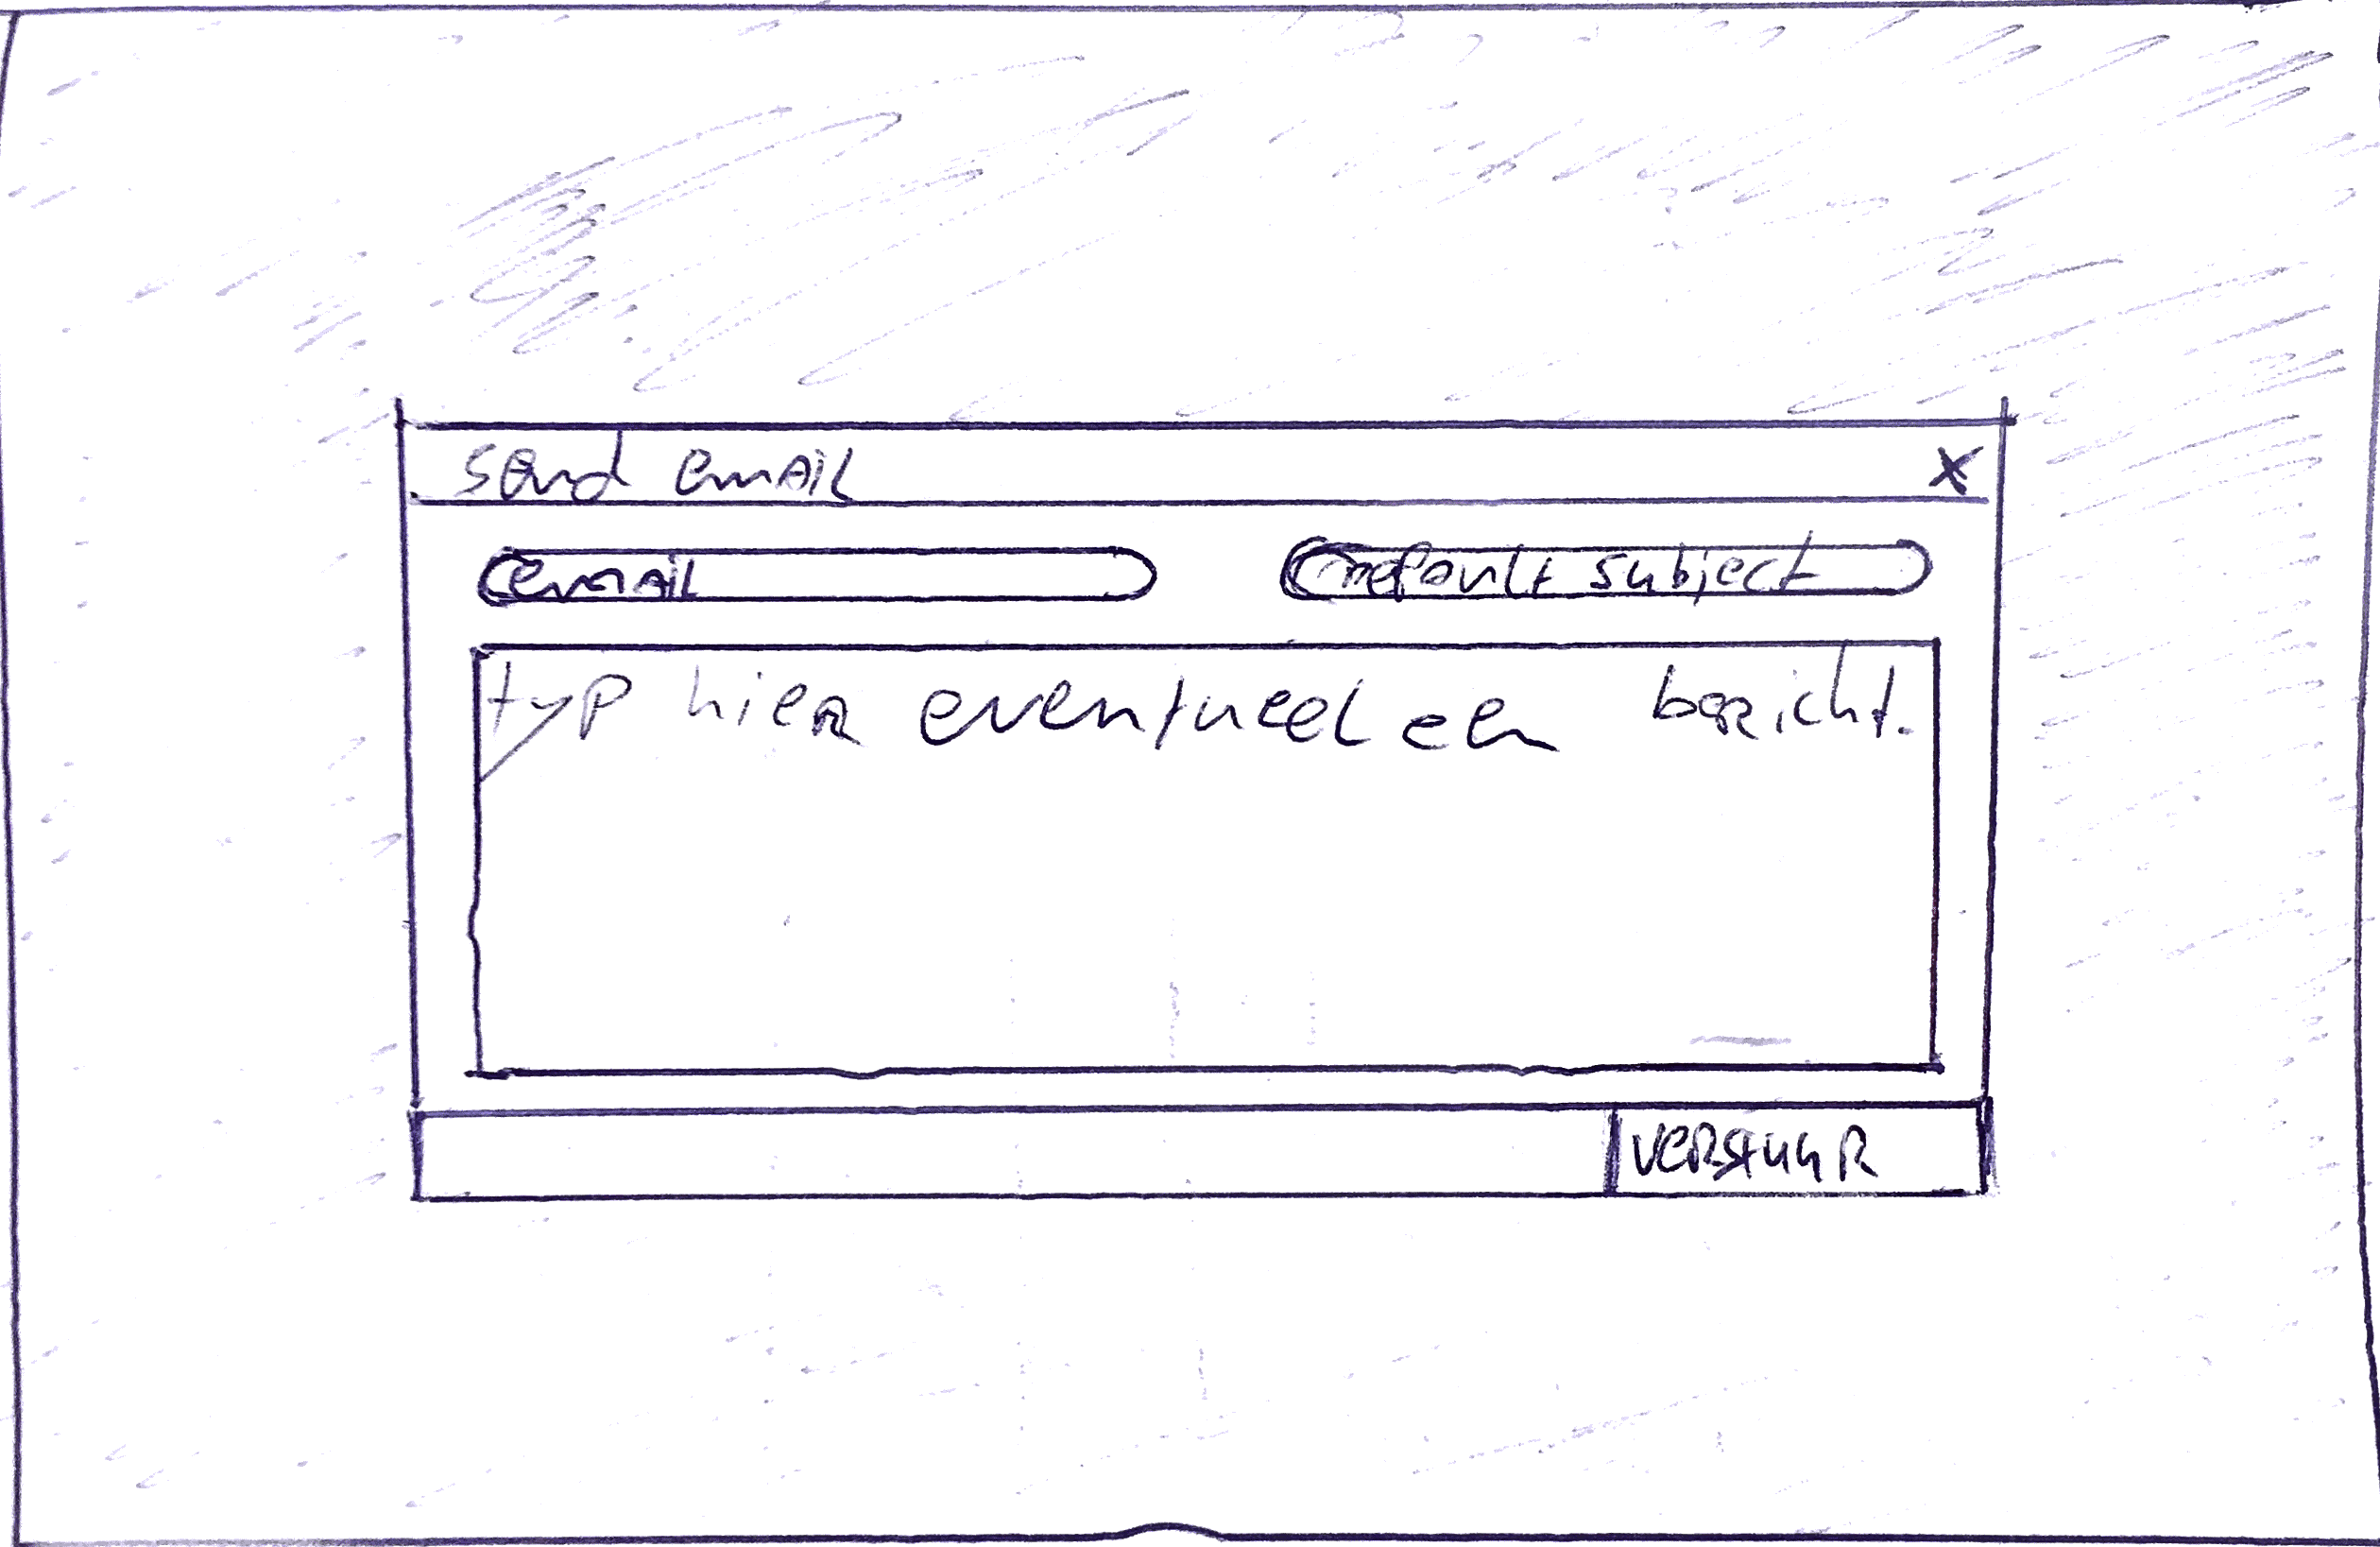 send email X
email
default subject
typ hier eventueel een bericht.
VERSTUUR